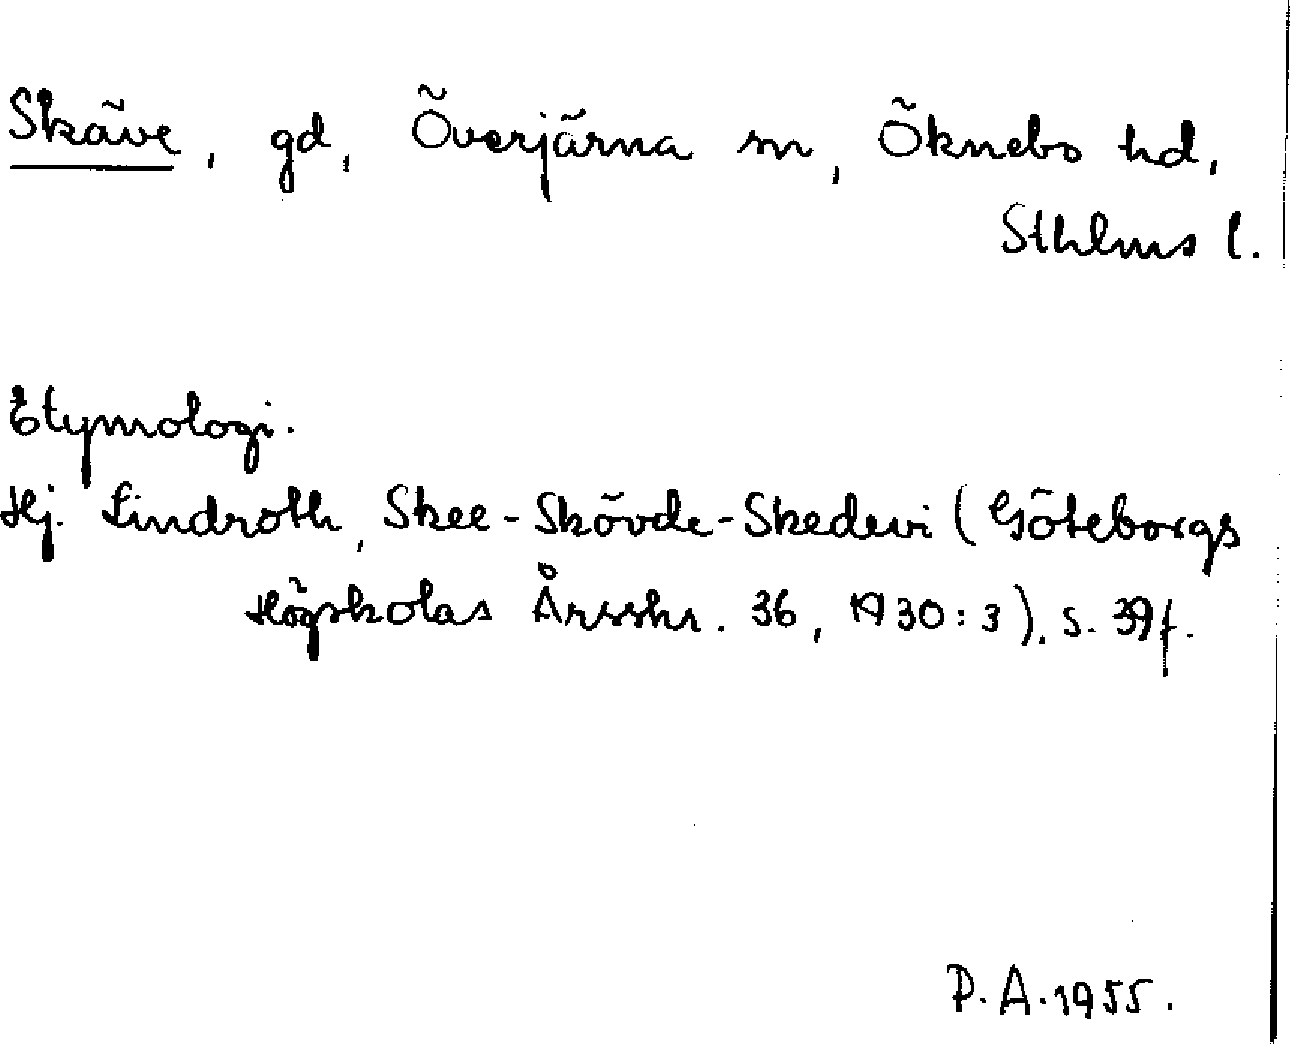 Skäve, gd, Överjärna sn, Öknebo hd,
Sthlms l.
Etymologi.
Hj. Lindroth, Skee-Skövde-Skedevi (Göteborgs
Högskolas Årsskr. 36, 1930:3), s. 39f.
P.A.1955.